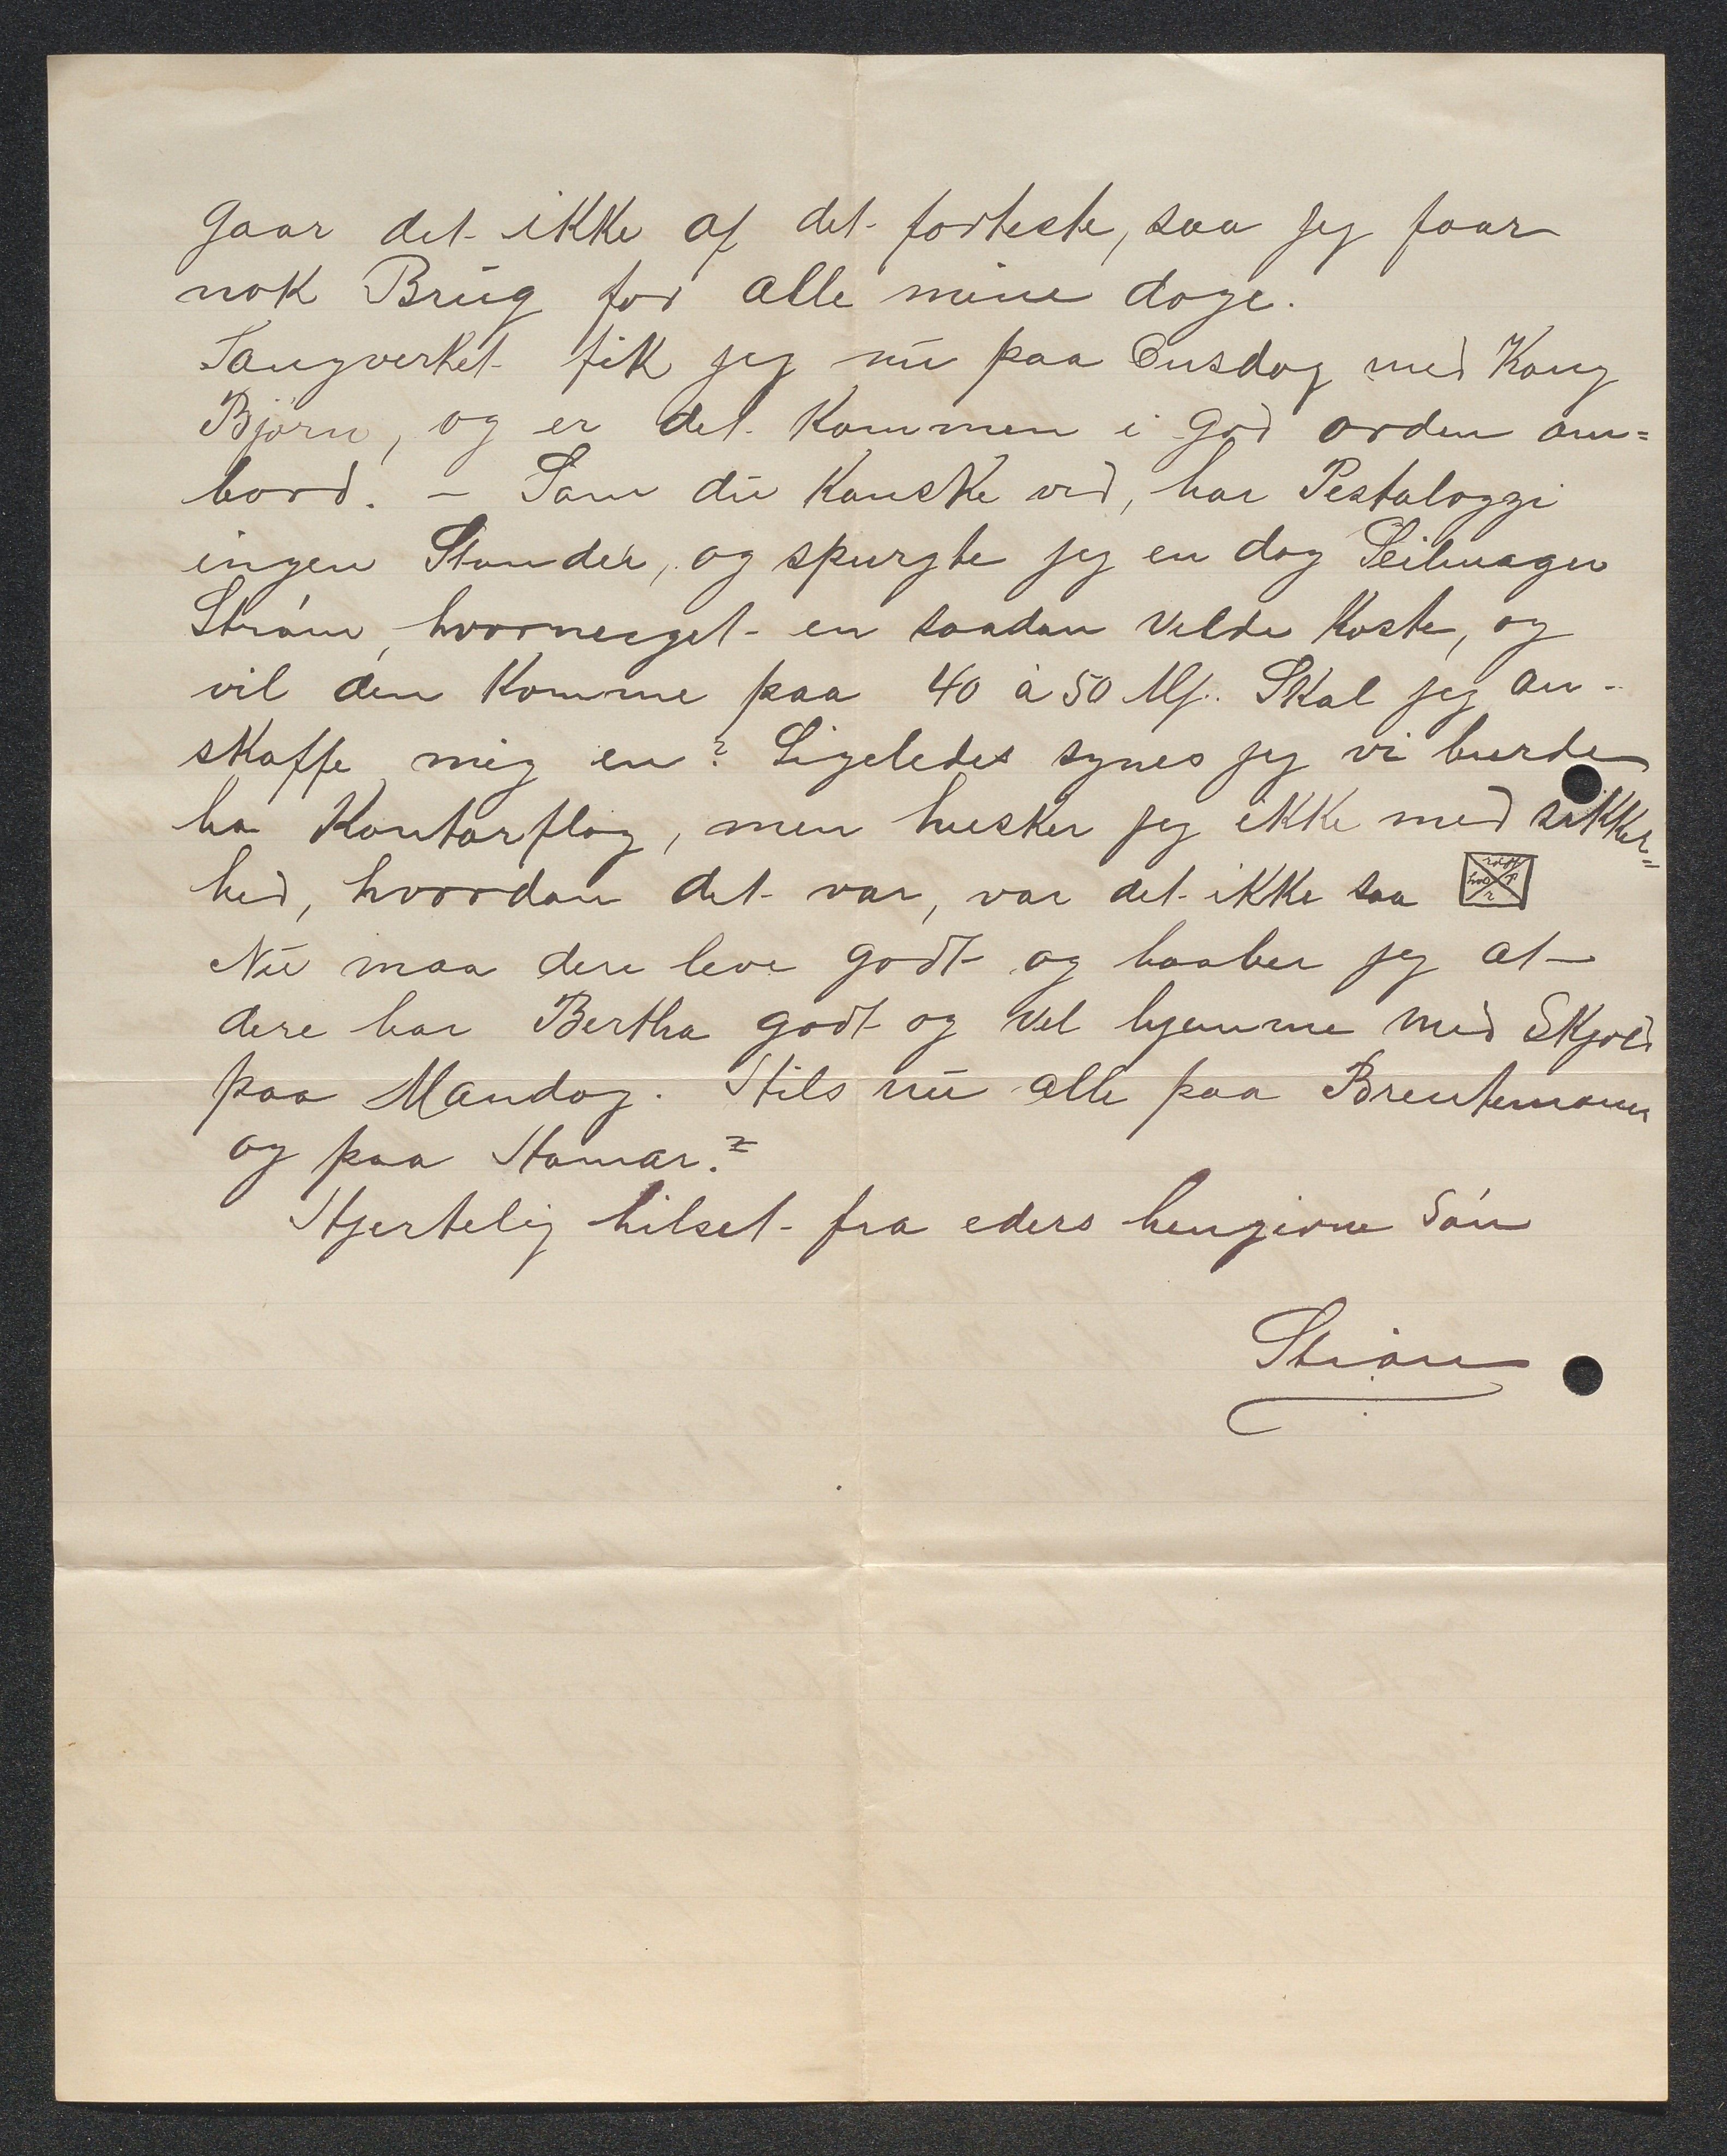 gaar det ikke af det forteste, saa jeg faar
nok Brug for alle mine dage.
Taugverket fik jeg nu paa Onsdag med Kong
Bjørn, og er det kommen i god orden om=
bord. – Som du Kanske ved, har Pestalozzi
ingen Stander, og spurgte jeg en dag Seilmager
Strøm, hvormeget en saadan vilde koste, og
vil den komme paa 40 à 50 M. Skal jeg an-
skaffe mig en? Ligeledes synes jeg vi burde
ha Kontorflag, men husker jeg ikke med sikker=
hed, hvordan det var, var det ikke saa
rødt
hvid P
r
Nu maa dere leve godt og haaber jeg at
dere har Bertha godt og vel hjemme med Skjold
paa Mandag. Hils nu alle paa
og paa Hamar.
Hjertelig hilset fra eders hengivne Søn